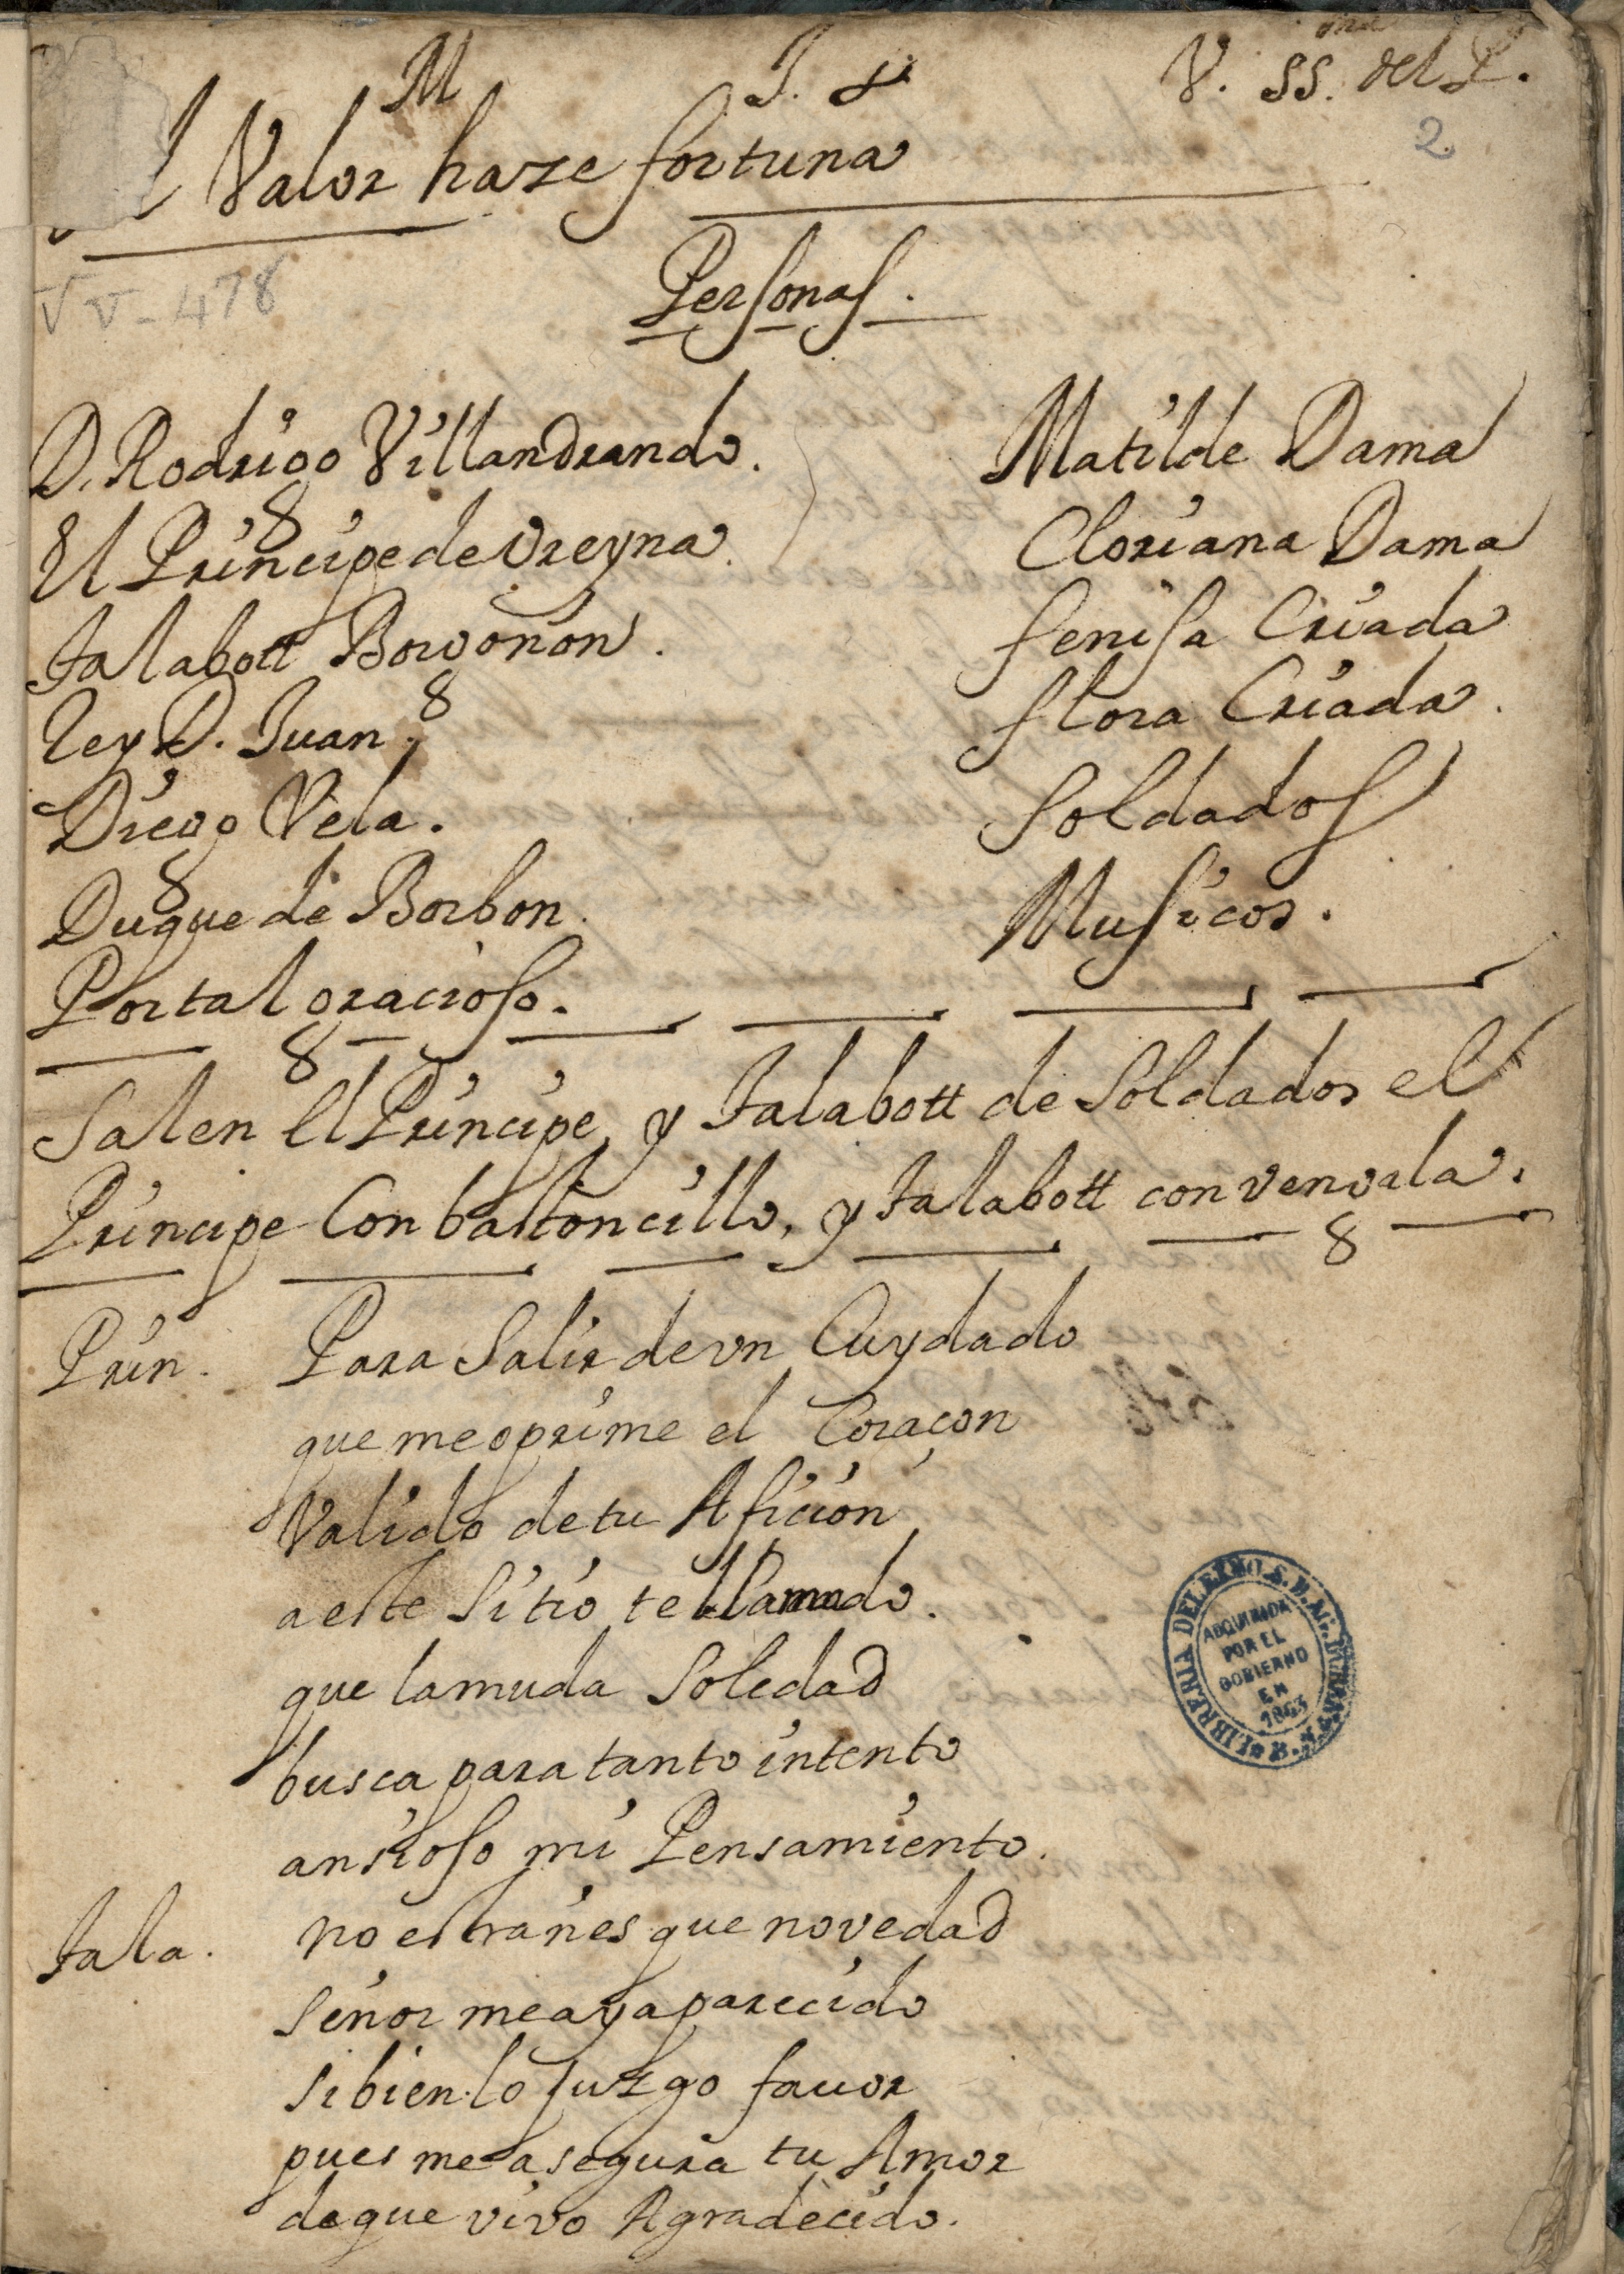 M J. V. SS. del
2
El Valor haze fortuna
VV-478
Personas.
D. Rodrigo Villandrando.
El Principe de Vreyna.
Talabott Borgoñon.
Rey D. Juan.
Diego Vela.
Duque de Borbon.
Portal gracioso.
Matilde Dama
Cloriana Dama
fenisa Criada
flora Criada.
Soldados
Musicos.
Salen El Principe, y Talabott de Soldados el
Principe Con bastoncillo, y Talabott con vengala.
Prin. Para Salir de vn Cuydado
que me oprime el Coraçon
Valido de tu Aficion
a este Sitio te llamado.
que la muda Soledad
busca para tanto intento
ansioso mi Pensamiento.
Tala. no estrañes que novedad
Señor me aya parecido
si bien lo juzgo fauor
pues me asegura tu Amor
de que vivo Agradecido.
LIBRERIA DEL EXMO. S. D. AG. DURAN
ADQUIRIDA
POR EL
GOBIERNO
EN
1863